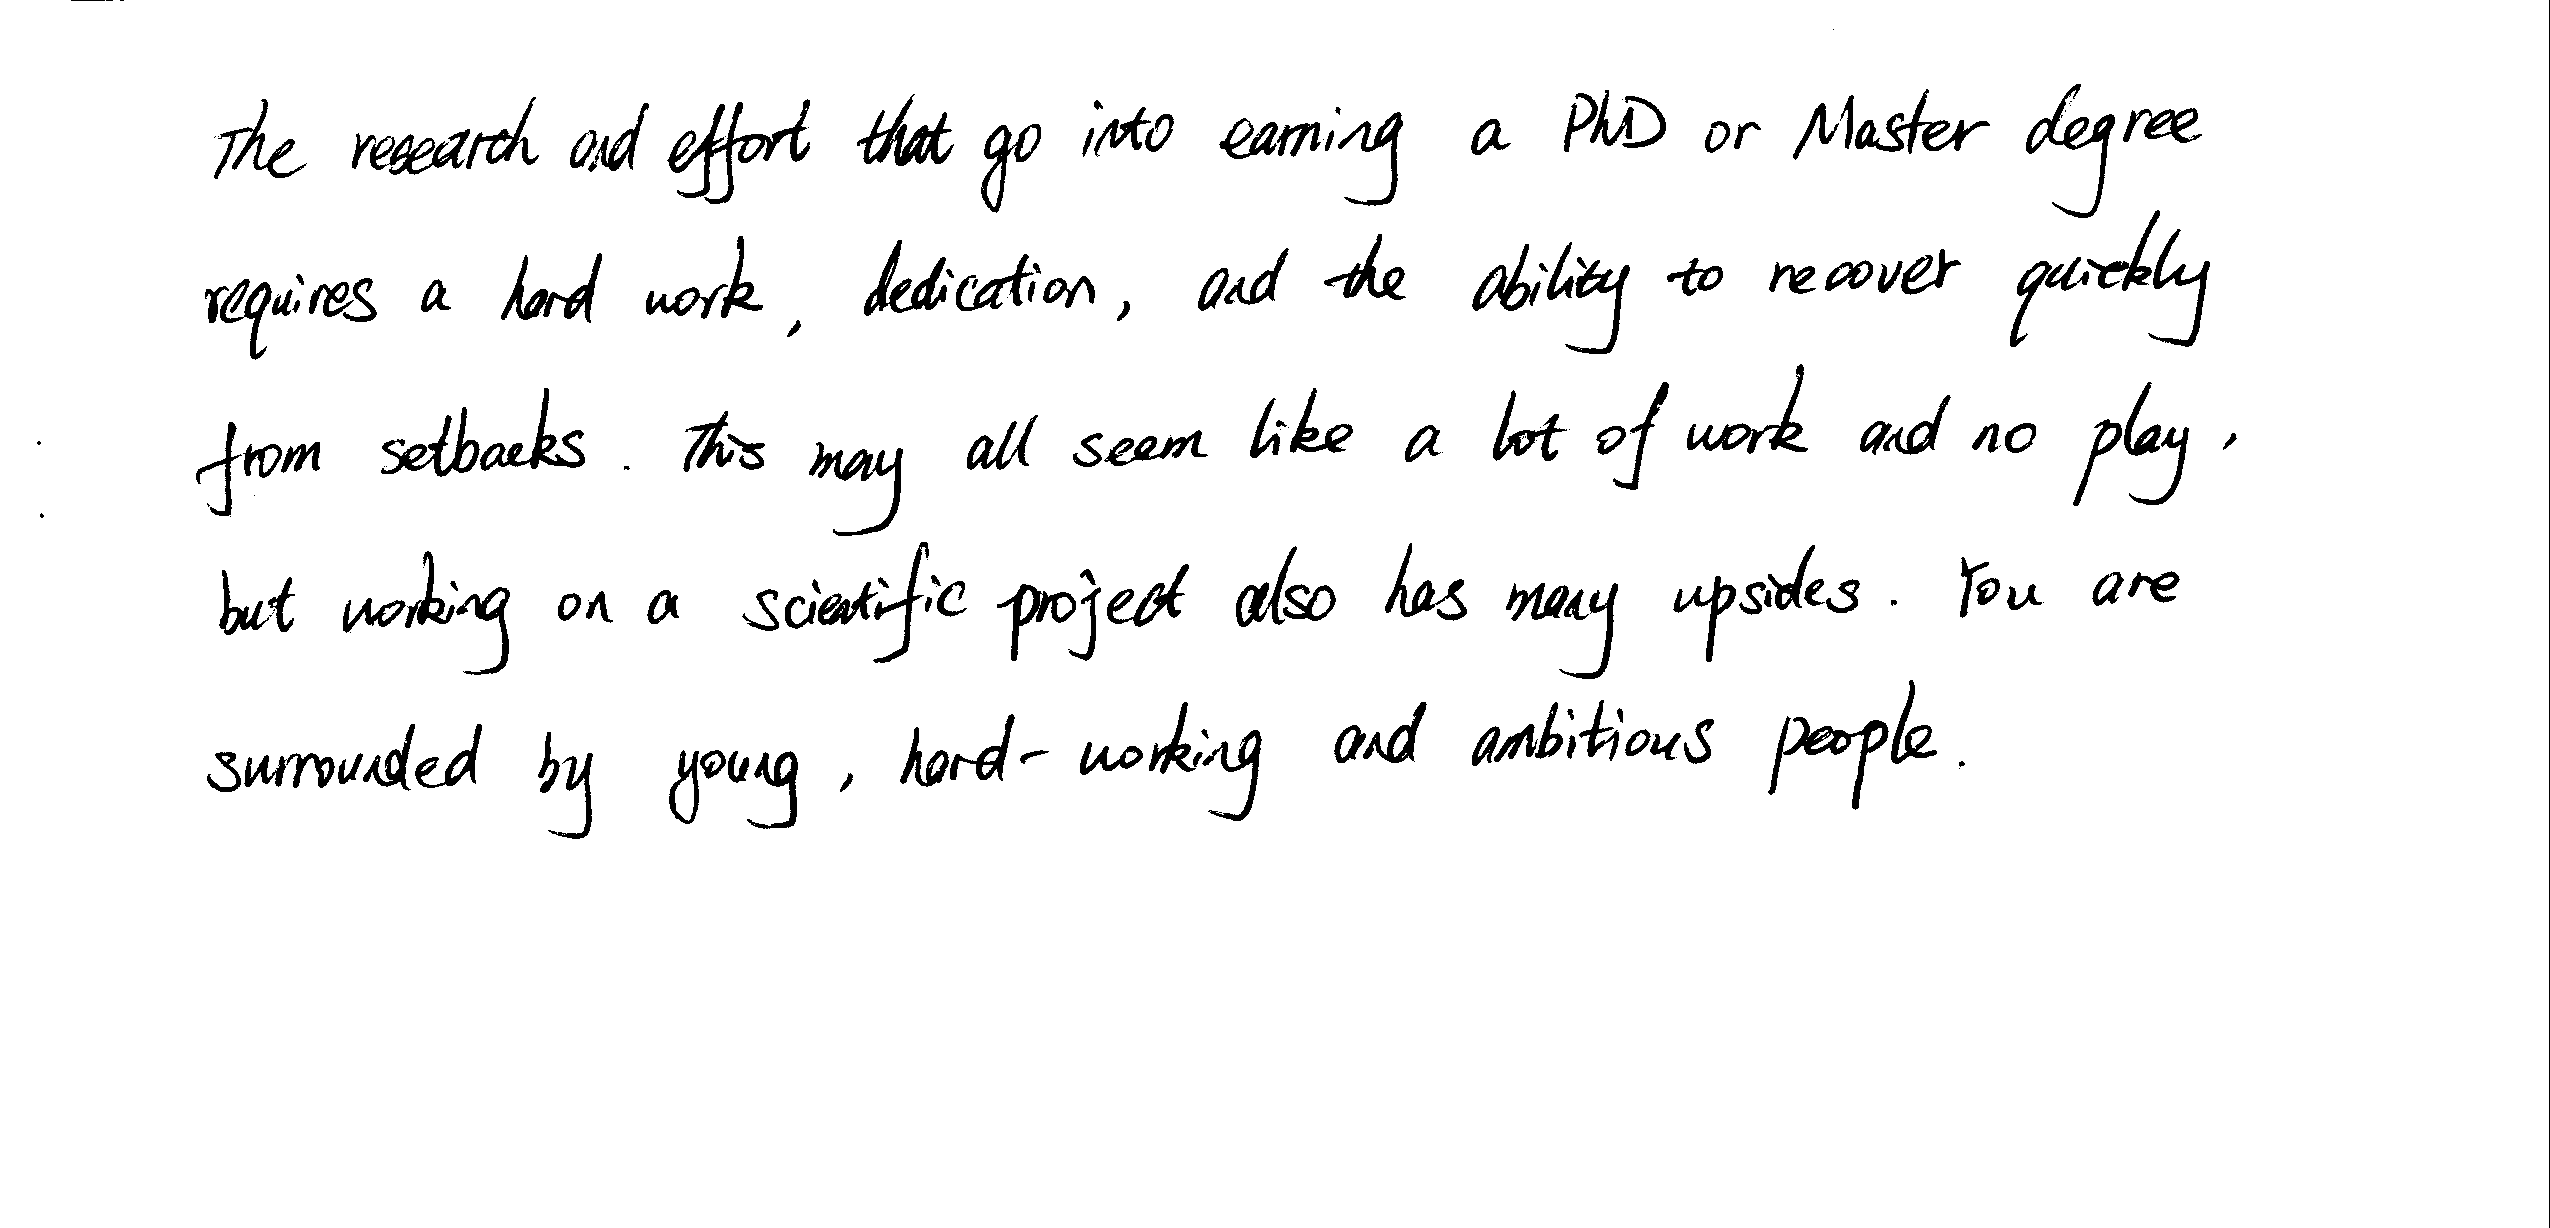 The research and effort that go into earning a PhD or Master degree
requires a hard work, dedication, and the ability to recover quickly
from setbacks. This may all seem like a lot of work and no play,
but working on a scientific project also has many upsides. You are
surrounded by young, hard-working and ambitious people.